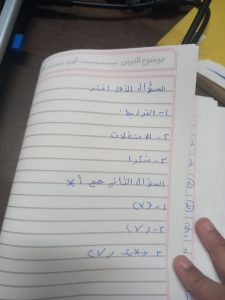 موضوع الدرس اليوم
السؤال الأول اختر
١- الترابط
٢- الاحتفالات
٣- شكرا
السؤال الثاني صح أم ×
١- (×)
٢- (✓)
٣- (✓)